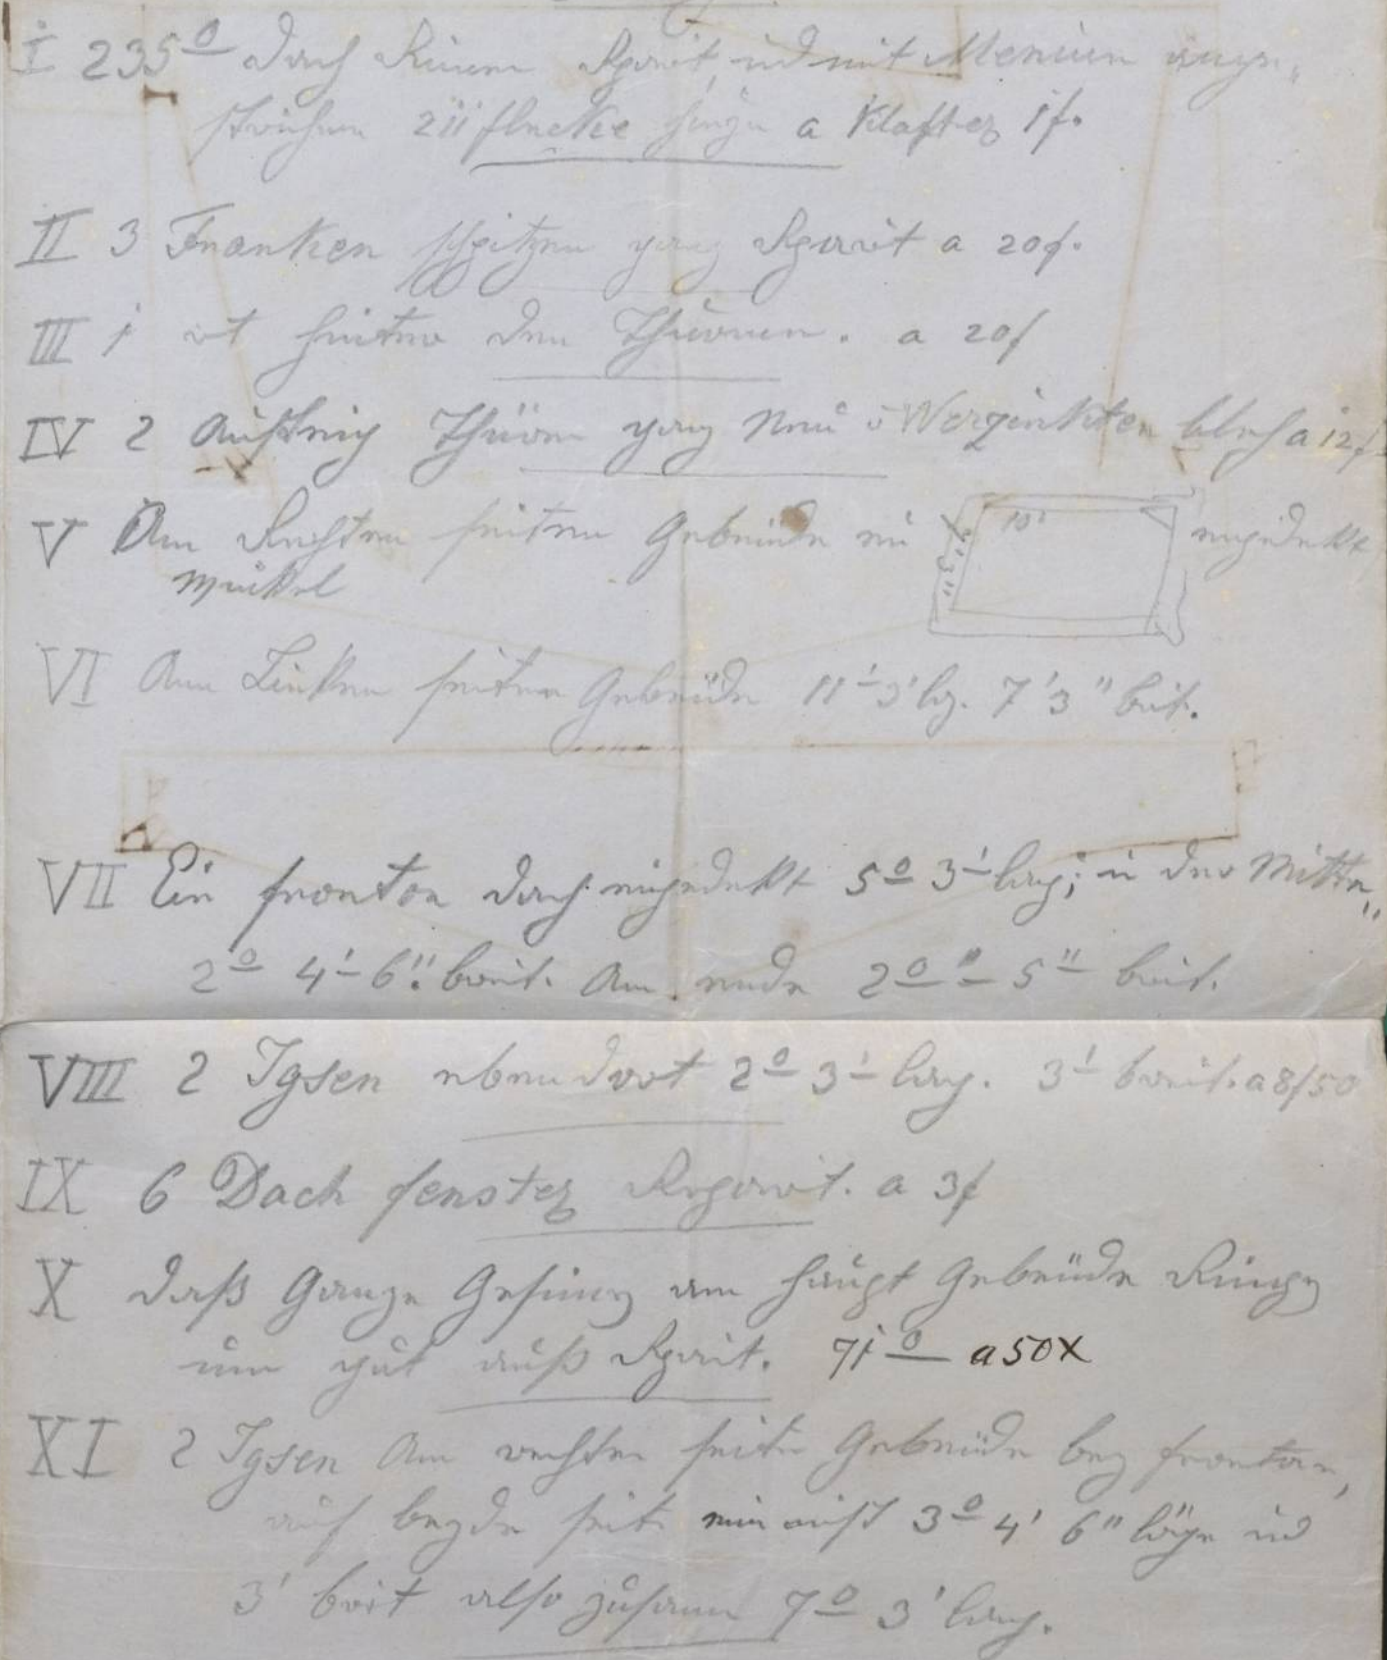 I 235° Dach Rinnen Reparirt, und mit Menium ange„
strichen a Klafter 1f.
II 3 Franken spitzen ganz Reparirt a 20f.
III 1 hinter den Thürmen. a 20f
IV 2 Thürm ganz Neu Werzinkten blech a 12f
V Am Rechten seiten Gebeude ein 10' 7'3" eingedekt
Winkel
VI Am Linken seiten Gebeude 11'-3' lg. 7'3" breit.
VII Ein fronton Dach eingedekt 5° 3' lang; in der Mitte„
2° 4' 6" breit. Am ende 2° " 5" breit.
VIII 2 Igsen ebendort 2° 3' lang. 3' breit. a 8f50
IX 6 Dach fenster Reparirt. a 3f
X Daß Ganze Gesimz am Haupt Gebeude Rings
um gut auß Reparirt. 71° a 50x
XI 2 Igsen Am rechten seiten Gebeude bey fronton,
auf beyde seit 3° 4' 6" länge und
3' breit also zusamen 7° 3' lang.